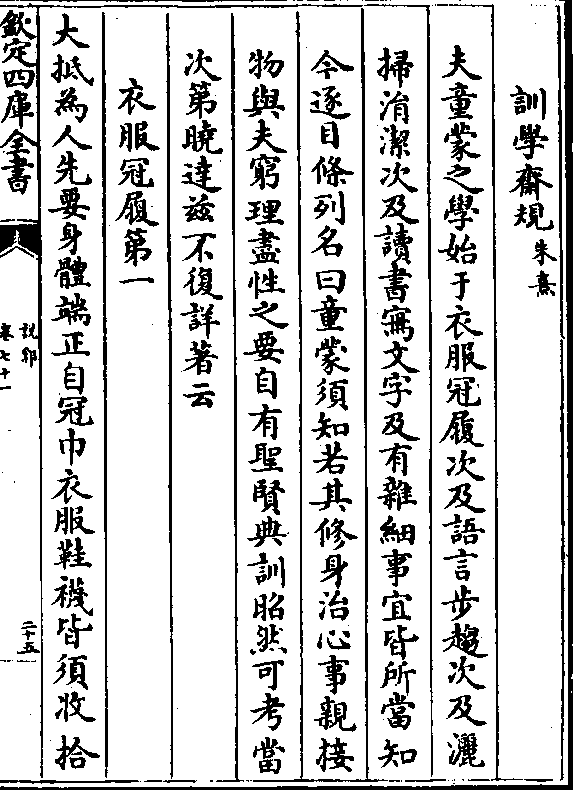 訓學齋規 朱熹
夫童蒙之學始于衣服冠履次及語言步趨次及灑
掃涓潔次及讀書寫文字及有雜細事宜皆所當知
今逐目條列名曰童蒙須知若其修身治心事親接
物與夫窮理盡性之要自有聖賢典訓昭然可考當
次第曉達兹不復詳著云
衣服冠履第一
大抵為人先要身體端正自冠巾衣服鞋襪皆須收拾
欽定四庫全書
說郛
卷七十一
二十五